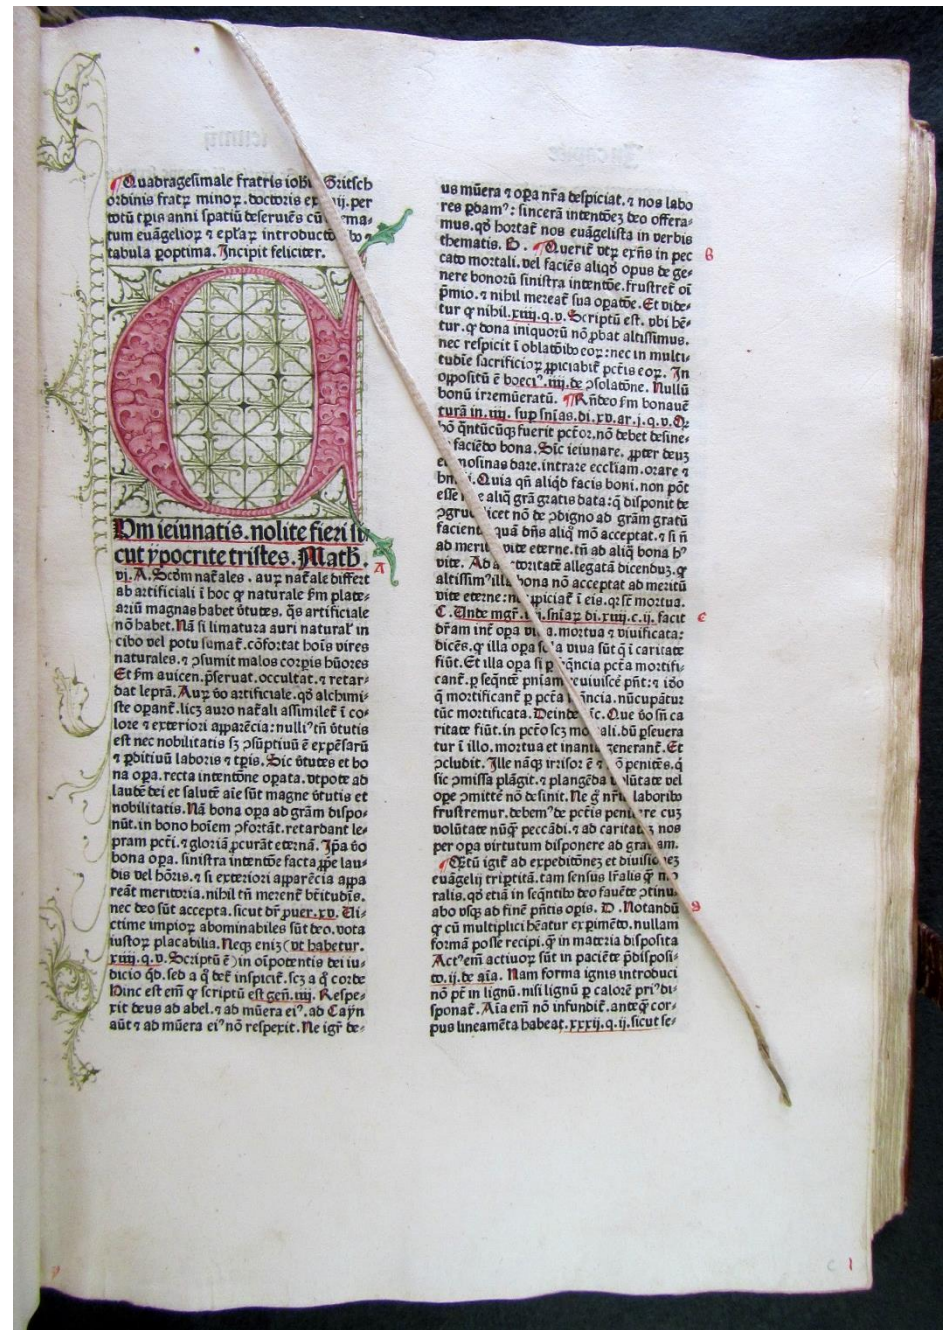 Quadragesimale fratris iohis Gritsch
ordinis fratꝝ minoꝝ. doctoris exij. per
totū tꝑis anni spatiū deseruiēs cū ema⸗
tum euāgelioꝝ ⁊ epłaꝝ introductō bo ⁊
tabula ꝑoptima. Incipit feliciter.
Vm ieiunatis. nolite fieri si
cut ypocrite tristes. Math̄.
A
vj. A. Scd̄m nat̄ales. auꝝ nat̄ale differt
ab artificiali ī hoc ꝙ naturale ẜm plate⸗
ariū magnas habet v̓tutes. q̄s artificiale
nō habet. Nā si limatura auri natural' in
cibo vel potu sumat̄. cōfortat hoīs vires
naturales. ⁊ ꝯsumit malos corꝑis hūores
Et ẜm auicen. p̄seruat. occultat. ⁊ retar⸗
dat leprā. Auꝝ v̓o artificiale. qd̓ alchimi⸗
ste oꝑant̄. licꝫ auro nat̄ali assimilet̄ ī co⸗
lore ⁊ exteriori aꝑparēcia: nulli⁹ tn̄ v̓tutis
est nec nobilitatis sꝫ ꝯsūptiuū ē expēsarū
⁊ ꝑditiuū laboris ⁊ tꝑis. Sic v̓tutes et bo
na oꝑa. recta intentōne oꝑata. vtpote ad
laudē dei et salutē aīe sūt magne v̓tutis et
nobilitatis. Nā bona oꝑa ad grām dispo⸗
nūt. in bono hoīem ꝯfortāt. retardant le⸗
pram pctī. ⁊ gloriā ꝓcurāt eternā. Ipa v̓o
bona oꝑa. sinistra intentōe facta ꝓpe lau⸗
dis vel hōris. ⁊ si exteriori aꝑparēcia aꝑpa
reāt meritoria. nihil tn̄ merent̄ bt̄itudīs.
nec deo sūt accepta. sicut dr̄ puer. xv. Ui⸗
ctime impioꝝ abominabiles sūt deo. vota
iustoꝝ placabilia. Neqꝫ enīꝫ (vt habetur.
xiiij. q. v. Scriptū ē) in oīpotentis dei iu⸗
dicio qd̓. sed a q̊ det̄ inspicit̄. scꝫ a q̊ corde
Hinc est em̄ ꝙ scriptū est gen̄. iiij. Respe⸗
xit deus ad abel. ⁊ ad mūera ei⁹. ad Cayn
aūt ⁊ ad mūera ei⁹ nō respexit. Ne igr̄ de⸗
us mūera ⁊ oꝑa nr̄a despiciat. ⁊ nos labo
res ꝑdam⁹: sincerā intentōeꝫ deo offera⸗
mus. qd̓ hortat̄ nos euāgelista in verbis
thematis. B. Querit̄ vtꝝ exn̄s in pec
B
cato mortali. vel faciēs aliqd̓ opus de ge⸗
nere bonorū sinistra intentōe. frustret̄ oī
p̄mio. ⁊ nihil mereat̄ sua oꝑatōe. Et vide⸗
tur ꝙ nihil. xiiij. q. v. Scriptū est. vbi hē⸗
tur. ꝙ dona iniquorū nō ꝓbat altissimus.
nec respicit ī oblatōibꝰ eoꝝ: nec in multi⸗
tudīe sacrificioꝝ ꝓpiciabit̄ pctīs eoꝝ. In
oꝑpositū ē boeci⁹. iiij. de ꝯsolatōne. Nullū
bonū irremūeratū. Rn̄deo ẜm bonauē
turā in. iiij. sup sn̄ias. di. xv. ar. j. q. v. Q
hō q̄ntūcūqꝫ fuerit pctor. nō debet desine⸗
faciēdo bona. Sic ieiunare. ꝓpter deuꝫ
elemosinas dare. intrare eccliam. orare ⁊
Quia qn̄ aliqd̓ facis boni. non pōt
esse aliq̄ grā gratis data: q̄ disponit de
ꝯgruo licet nō de ꝯdigno ad grām gratū
facient quā dn̄s aliq̊ mō acceptat. ⁊ si n̄
ad merit vite eterne. tn̄ ad aliq̄ bona h⁹
vite. Ad auctoritatē allegatā dicenduꝫ. ꝙ
altissim⁹ illa bona nō acceptat ad meritū
vite eterne: nec ꝓpiciat̄ ī eis. qr̄ sūt mortua.
C. Unde mgr̄. iiij. sn̄iaꝝ di. xiiij. c. ij. facit
C
dr̄am int̄ oꝑa viua. mortua ⁊ viuificata:
dicēs. ꝙ illa oꝑa sola viua sūt q̄ ī caritate
fiūt. Et illa oꝑa si ꝑ seq̄ncia pctā mortifi⸗
cant̄. ꝑ seq̄ntē pn̄iam reuiuisce pn̄t: ⁊ idō
q̄ mortificant̄ ꝑ pctā seq̄ncia. nūcupātur
tūc mortificata. Deinde dīc. Que v̓o sn̄ ca
ritate fiūt. in pctō scꝫ mortali. dū ꝑseuera
tur ī illo. mortua et inania generant̄. Et
ꝯcludit. Ille nāqꝫ irrisor ē ⁊ nō penitēs. q̄
sic ꝯmissa plāgit. ⁊ plangēda volūtate vel
oꝑe ꝯmittē nō desinit. Ne g̊ nr̄is laboribꝰ
frustremur. debem⁹ de pctīs penitere cuꝫ
volūtate nūq̄ peccādi. ⁊ ad caritatē nos
per oꝑa virtutum disponere ad gratiam.
Qd̄tū igit̄ ad expeditōneꝫ et diuisioneꝫ
euāgelij triptitā. tam sensus lr̄alis q̄ mo
ralis. qd̓ etiā in seq̄ntibꝰ deo fauēte ꝯtinu
abo vsqꝫ ad finē pn̄tis oꝑis. D. Notandū
D
ꝙ cū multiplici hēatur exꝑimēto. nullam
formā posse recipi. q̄ in materia disposita
Act⁹ em̄ actiuoꝝ sūt in paciēte p̄disposi⸗
to. ij. de aīa. Nam forma ignis introduci
nō pt̄ in lignū. nisi lignū ꝑ calorē pri⁹ di⸗
sponat̄. Aīa em̄ nō infundit̄. anteq̄ cor⸗
pus lineamēta habeat. xxxij. q. ij. sicut se⸗
c 1